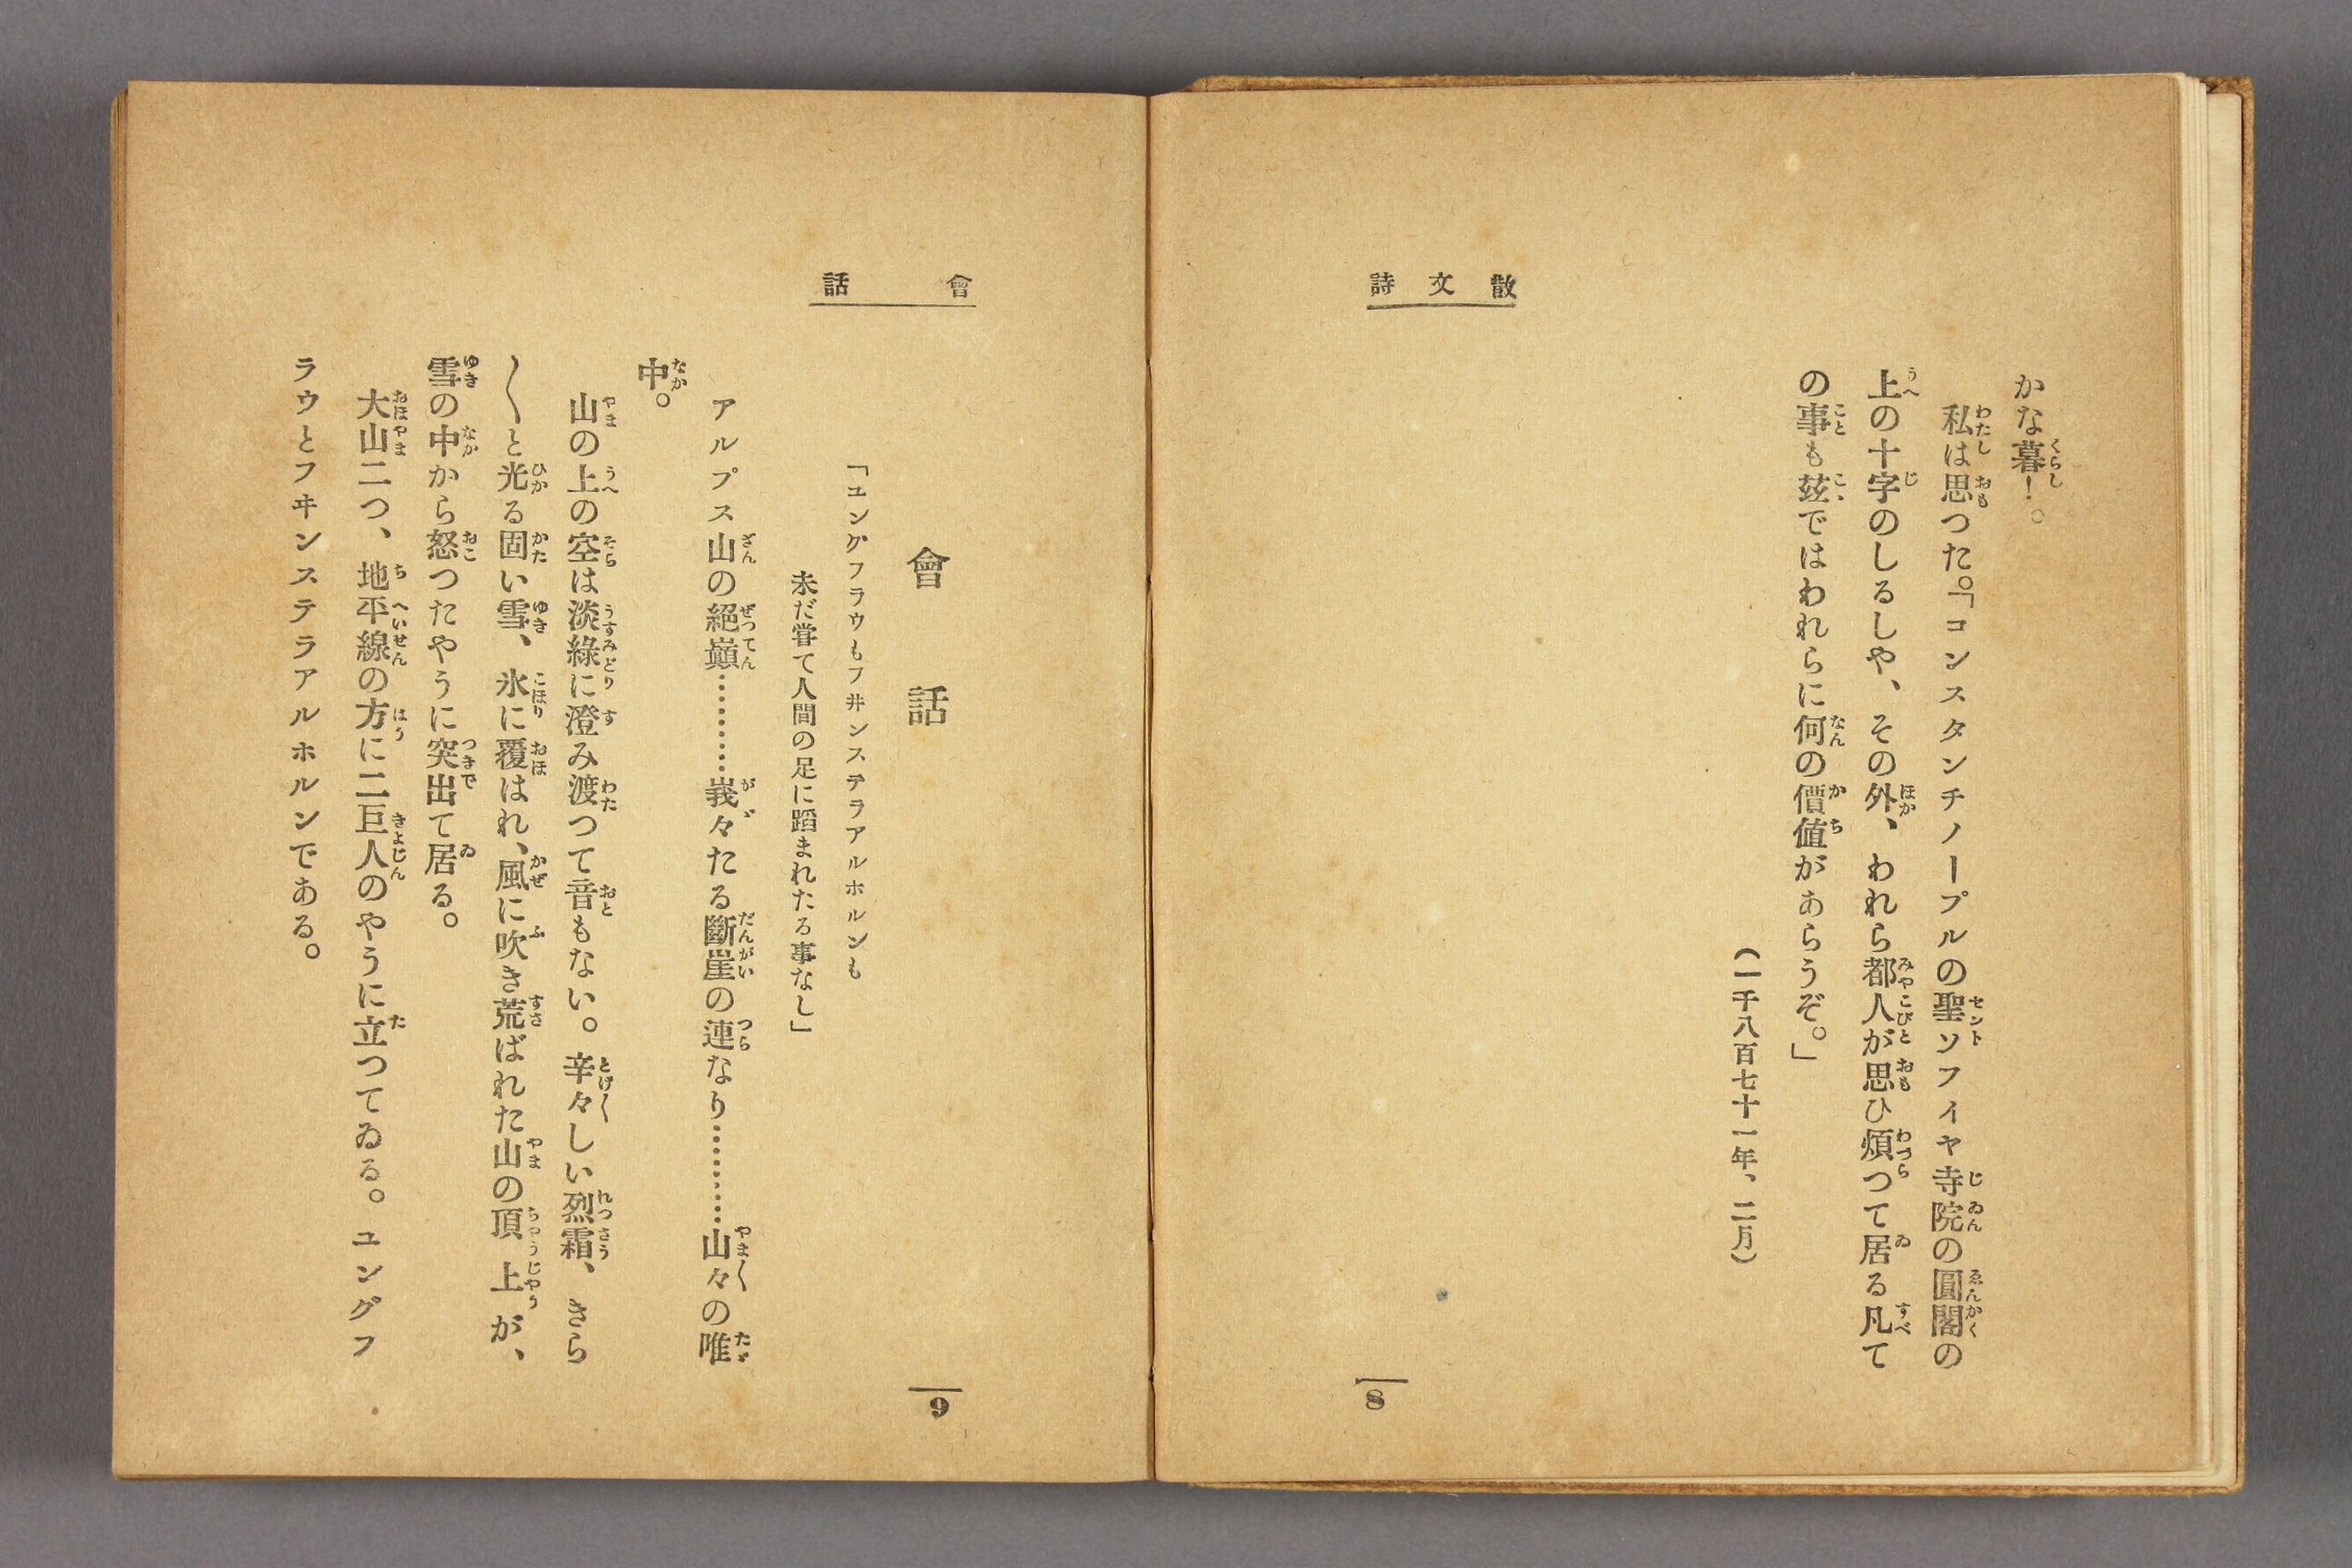 散文詩
かな暮！。
私は思つた。「コンスタンチノープルの聖ソフィヤ寺院の圓閣の
上の十字のしるしや、その外、われら都人が思ひ煩つて居る凡て
の事も玆ではわれらに何の價値があらうぞ。」
（一千八百七十一年、二月）
8
會話
會話
「ユングフラウもフ井ンステラアルホルンも
未だ嘗て人間の足に蹈まれたる事なし」
アルプス山の絕巓…………峩々たる斷崖の連なり…………山々の唯
中。
山の上の空は淡綠に澄み渡つて音もない。辛々しい烈霜、きら
〱と光る固い雪、氷に覆はれ、風に吹き荒ばれた山の頂上が、
雪の中から怒つたやうに突出て居る。
大山二つ、地平線の方に二巨人のやうに立つてゐる。ユングフ
ラウとフヰンステラアルホルンである。
9